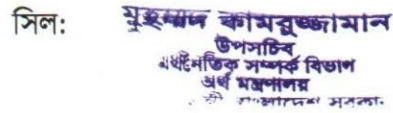 সিল: মুহম্মদ কামরুজ্জামান
উপসচিব
অর্থনৈতিক সম্পর্ক বিভাগ
অর্থ মন্ত্রণালয়